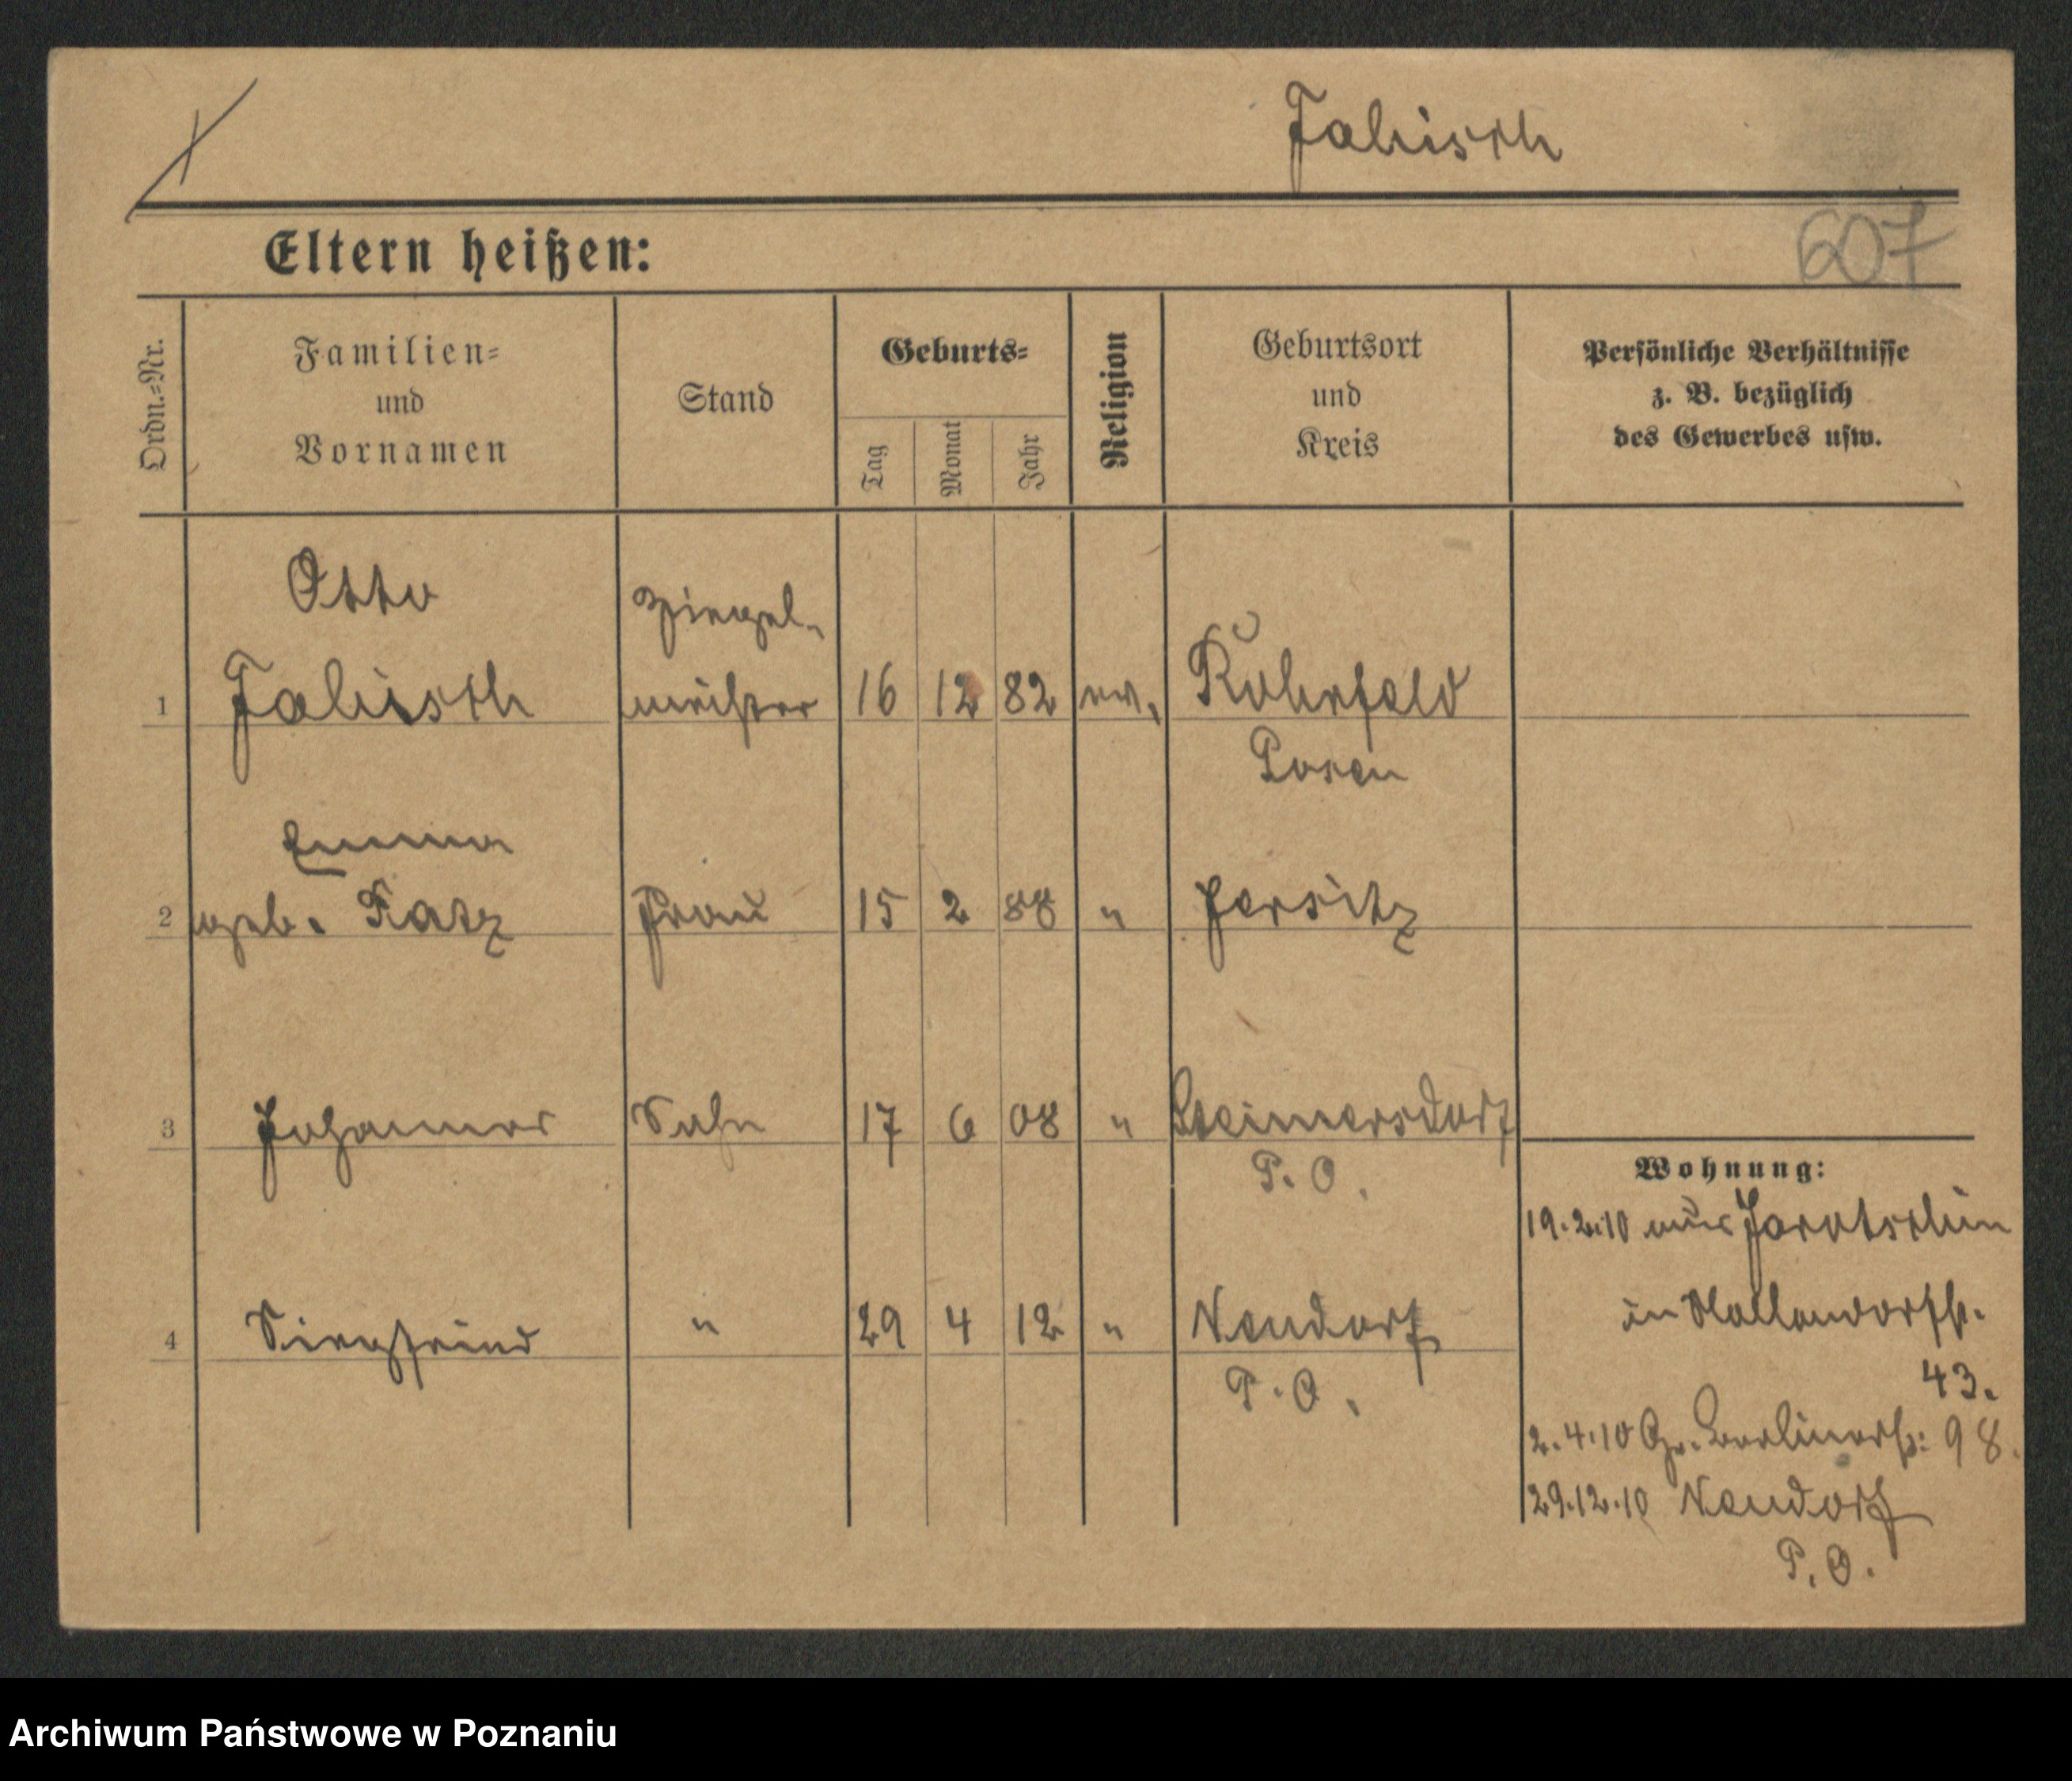 Fahisch
607
Eltern heißen:
Ordn.=Nr.
Familien=
und
Vornamen
Stand
Geburts=
Tag
Monat
Jahr
Religion
Geburtsort
und
Kreis
Persönliche Verhältnisse
z. B. bezüglich
des Gewerbes usw.
Otto
Ziegel-
1 Fahisch meister 16 12 82 ev.
Posen
Emma
2 geb. Katz Frau 15 2 88 " Jersitz
3 Johannes Sohn 17 6 08 "
P. O.
Wohnung:
19.2.10 aus Jarotschin
4 Siegfried " 29 4 12 " Neudorf
in
P. O.
43.
2.4.10 Gr. Berlinerstr: 98.
29.12.10 Neudorf
P. O.
Archiwum Państwowe w Poznaniu